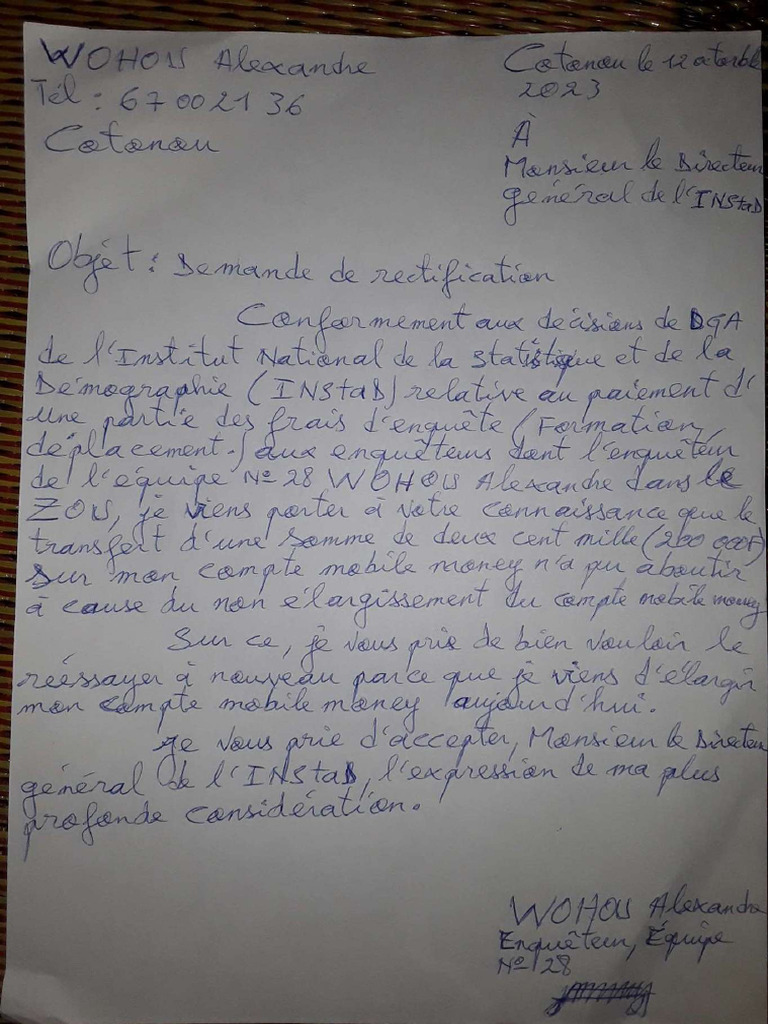 WOHOU Alexandre
Tél : 67 00 21 36
Cotonou
Cotonou le 12 octobre
2023
À
Monsieur le Directeur
général de l'INStaD
Objet : Demande de rectification
Conformement aux décisions de DGA
de l'Institut National de la statistique et de la
Démographie (INStaD) relative au paiement d'
une partie des frais d'enquête (Formation,
déplacement.) aux enquêteurs dont l'enquêteur
de l'équipe N° 28 WOHOU Alexandre dans le
ZOU, je viens porter à votre connaissance que le
transfert d'une somme de deux cent mille (200 000F)
sur mon compte mobile money n'a pu aboutir
à cause du non élargissement du compte mobile money
Sur ce, je vous prie de bien vouloir le
réessayer à nouveau parce que je viens d'élargir
mon compte mobile money aujourd'hui.
Je vous prie d'accepter, Monsieur le Directeur
général de l'INStaD, l'expression de ma plus
profonde considération.
WOHOU Alexandre
Enquêteur, Équipe
N° 28